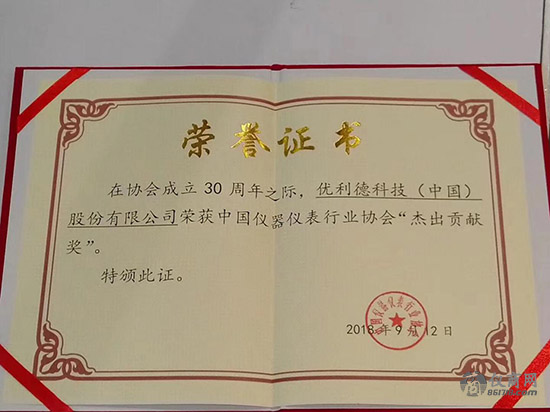 荣誉证书
在协会成立30周年之际，优利德科技（中国）
股份有限公司荣获中国仪器仪表行业协会“杰出贡献
奖”。
特颁此证。
中国仪器仪表行业协会
2018年9月12日
仪商网
861718.com